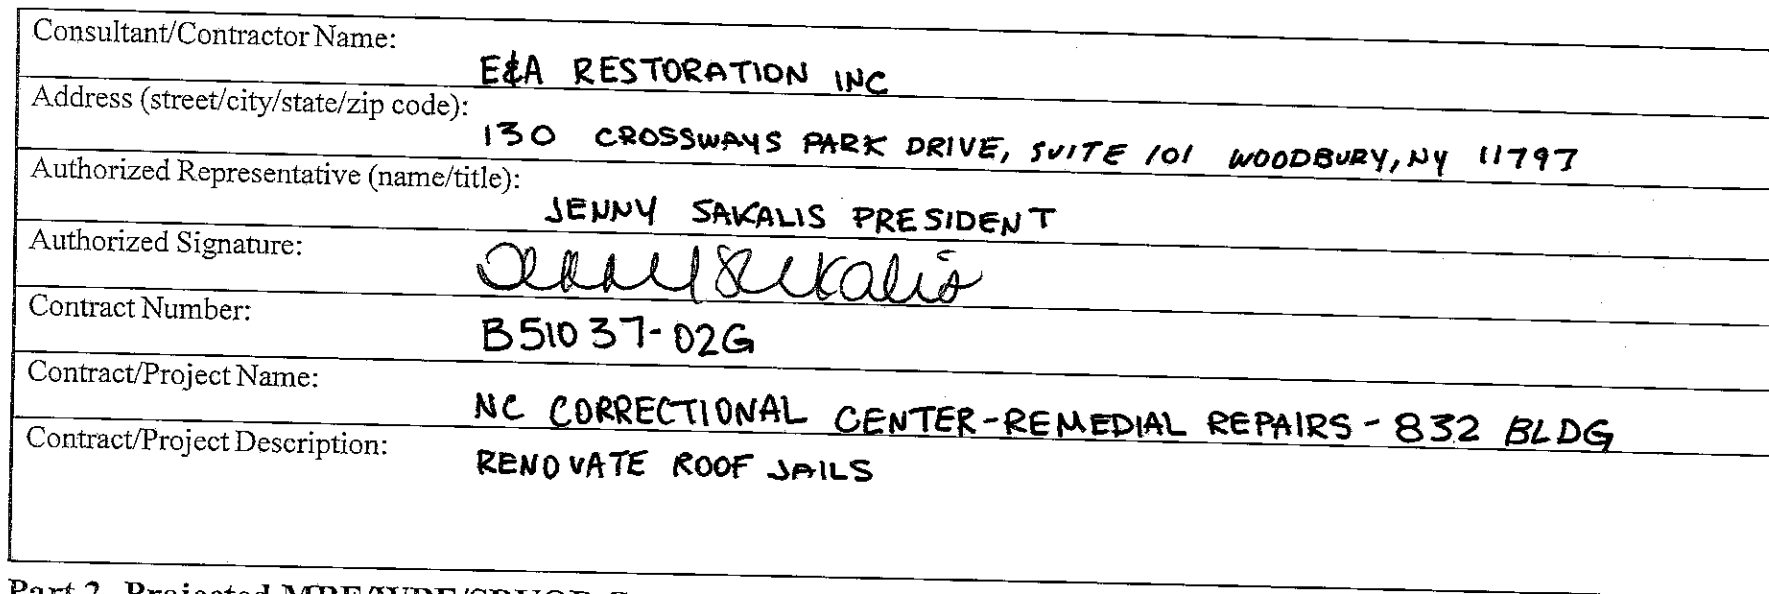 Consultant/Contractor Name:
E&A RESTORATION INC
Address (street/city/state/zip code):
130 CROSSWAYS PARK DRIVE, SUITE 101 WOODBURY, NY 11797
Authorized Representative (name/title):
JENNY SAKALIS PRESIDENT
Authorized Signature:
Jenny Sakalis
Contract Number:
B51037-02G
Contract/Project Name:
NC CORRECTIONAL CENTER-REMEDIAL REPAIRS - 832 BLDG
Contract/Project Description:
RENOVATE ROOF JAILS
Part 2- Projected MBE/WBE/SDVOB